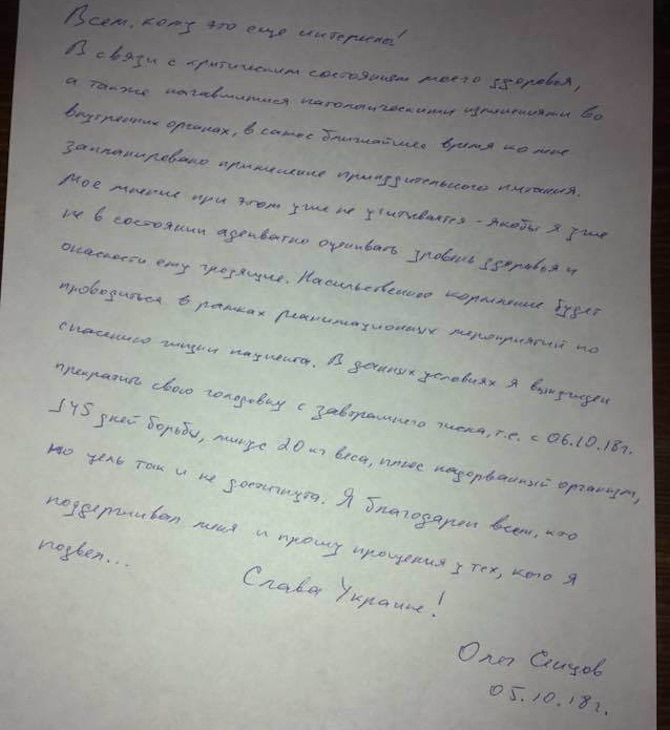 Всем, кому это еще интересно!
В связи с критическим состоянием моего здоровья,
а также начавшимися патологическими изменениями во
внутренних органах, в самое ближайшее время ко мне
запланировано применение принудительного питания.
Мое мнение при этом уже не учитывается - якобы я уже
не в состоянии адекватно оценивать уровень здоровья и
опасности ему грозящие. Насильственное кормление будет
проводиться в рамках реанимационных мероприятий по
спасению жизни пациента. В данных условиях я вынужден
прекратить свою голодовку с завтрашнего числа, т.е. с 06.10.18г.
145 дней борьбы, минус 20 кг веса, плюс надорванный организм,
но цель так и не достигнута. Я благодарен всем, кто
поддерживал меня и прошу прощения у тех, кого я
подвел...
Слава Украине!
Олег Сенцов
05.10.18г.